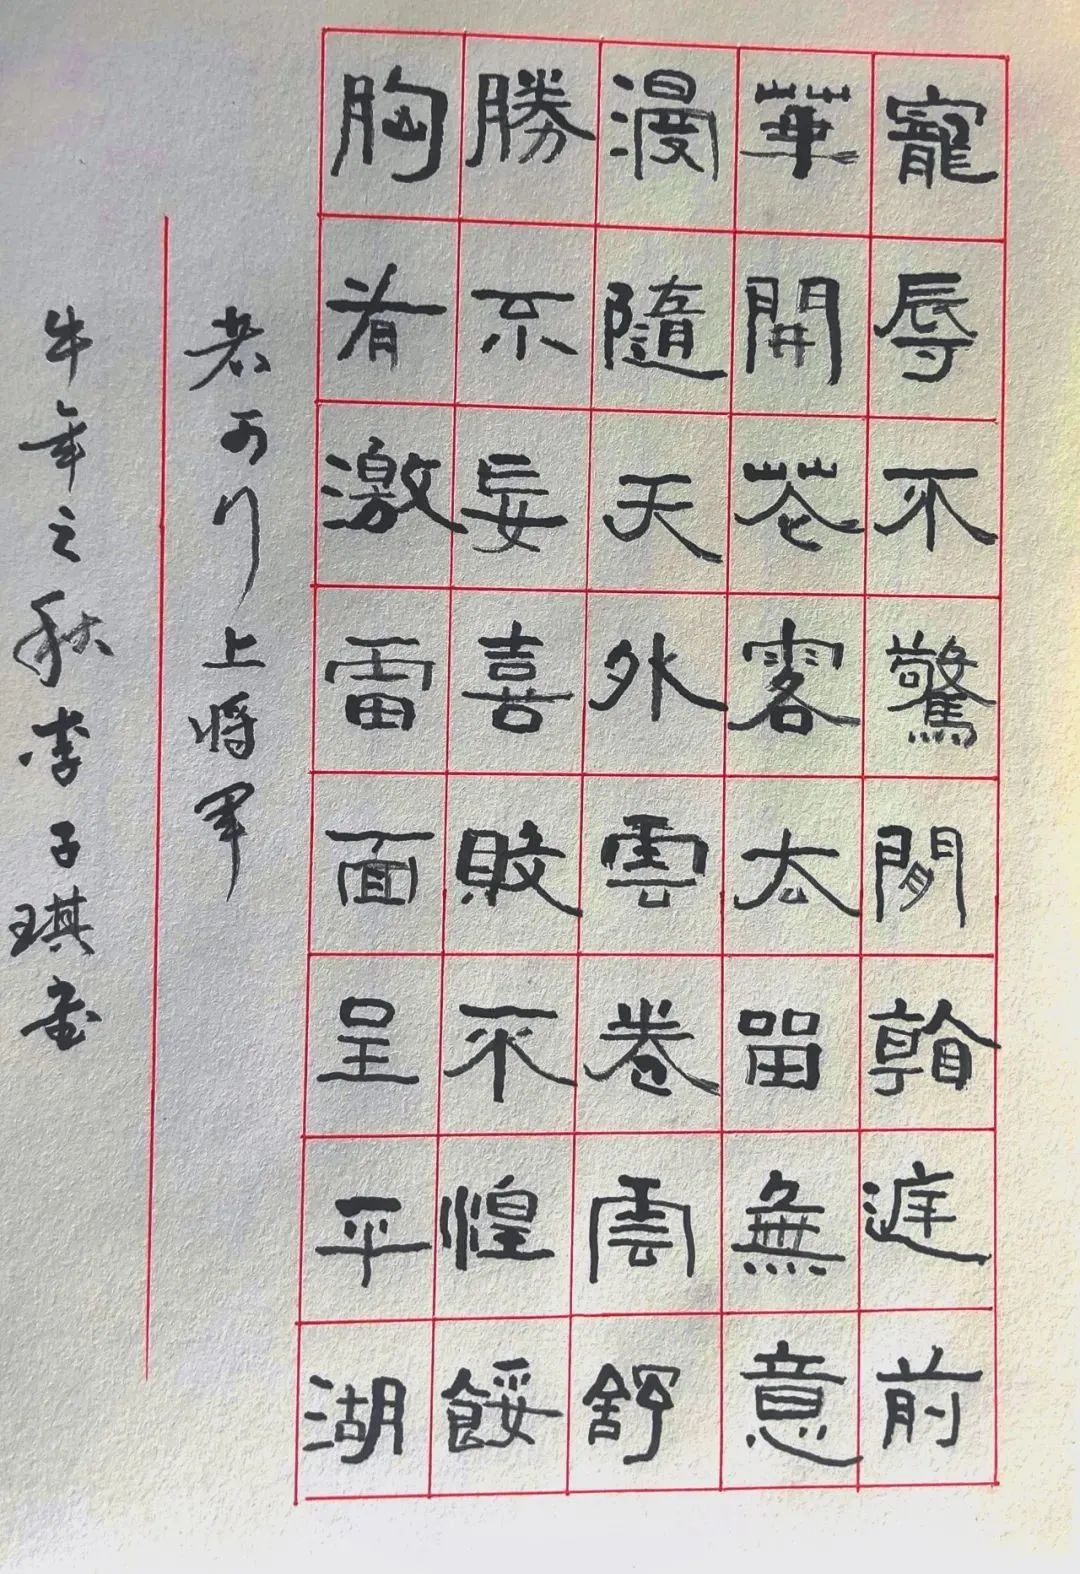 寵辱不驚閒看庭前
華開花落去留無意
漫隨天外雲卷雲舒
勝不妄喜敗不惶餒
胸有激雷面呈平湖
者可拜上将軍
牛年之秋李子琪書